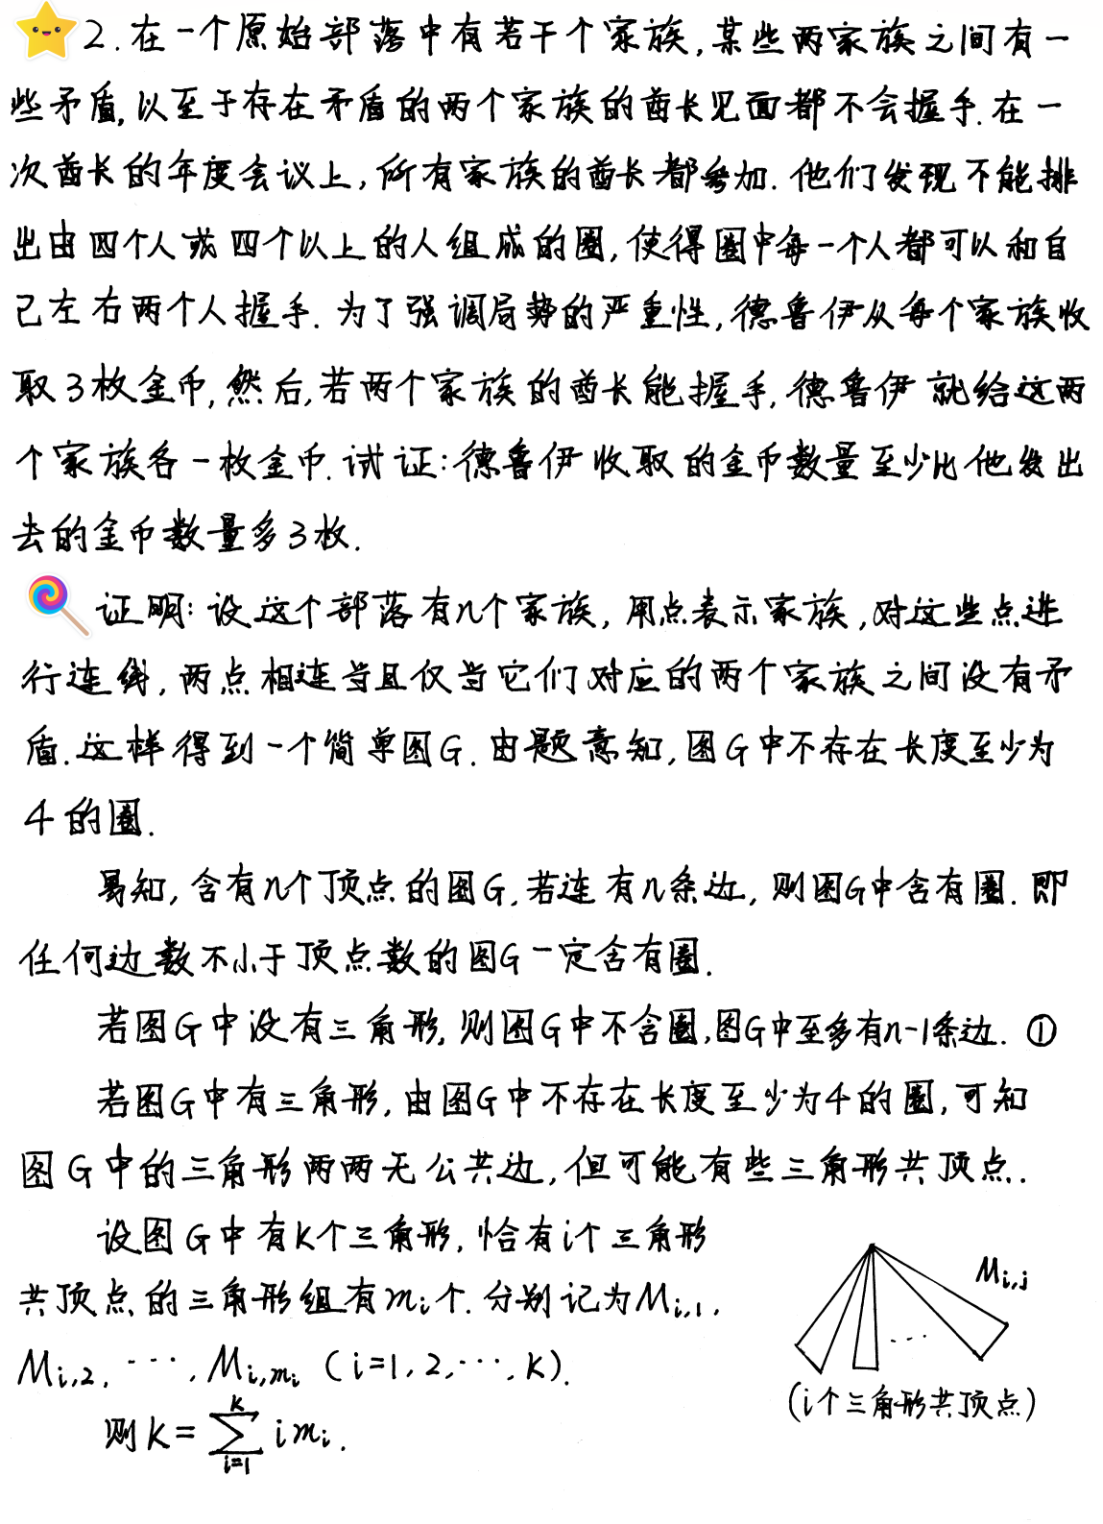 2.在一个原始部落中有若干个家族,某些两家族之间有一
些矛盾,以至于存在矛盾的两个家族的酋长见面都不会握手.在一
次酋长的年度会议上,所有家族的酋长都参加.他们发现不能排
出由四个人或四个以上的人组成的圈,使得圈中每一个人都可以和自
己左右两个人握手.为了强调局势的严重性,德鲁伊从每个家族收
取3枚金币,然后,若两个家族的酋长能握手,德鲁伊就给这两
个家族各一枚金币.试证:德鲁伊收取的金币数量至少比他发出
去的金币数量多3枚.
证明:设这个部落有n个家族,用点表示家族,对这些点进
行连线,两点相连当且仅当它们对应的两个家族之间没有矛
盾.这样得到一个简单图G.由题意知,图G中不存在长度至少为
4的圈.
易知,含有n个顶点的图G,若连有n条边,则图G中含有圈.即
任何边数不小于顶点数的图G一定含有圈.
若图G中没有三角形,则图G中不含圈,图G中至多有n-1条边. ①
若图G中有三角形,由图G中不存在长度至少为4的圈,可知
图G中的三角形两两无公共边,但可能有些三角形共顶点.
设图G中有K个三角形,恰有i个三角形
共顶点的三角形组有mi个.分别记为Mi,1,
Mi,2, ···, Mi,mi (i=1,2,···,K).
则K=∑_{i=1}^{K} imi.
Mi,j
···
(i个三角形共顶点)